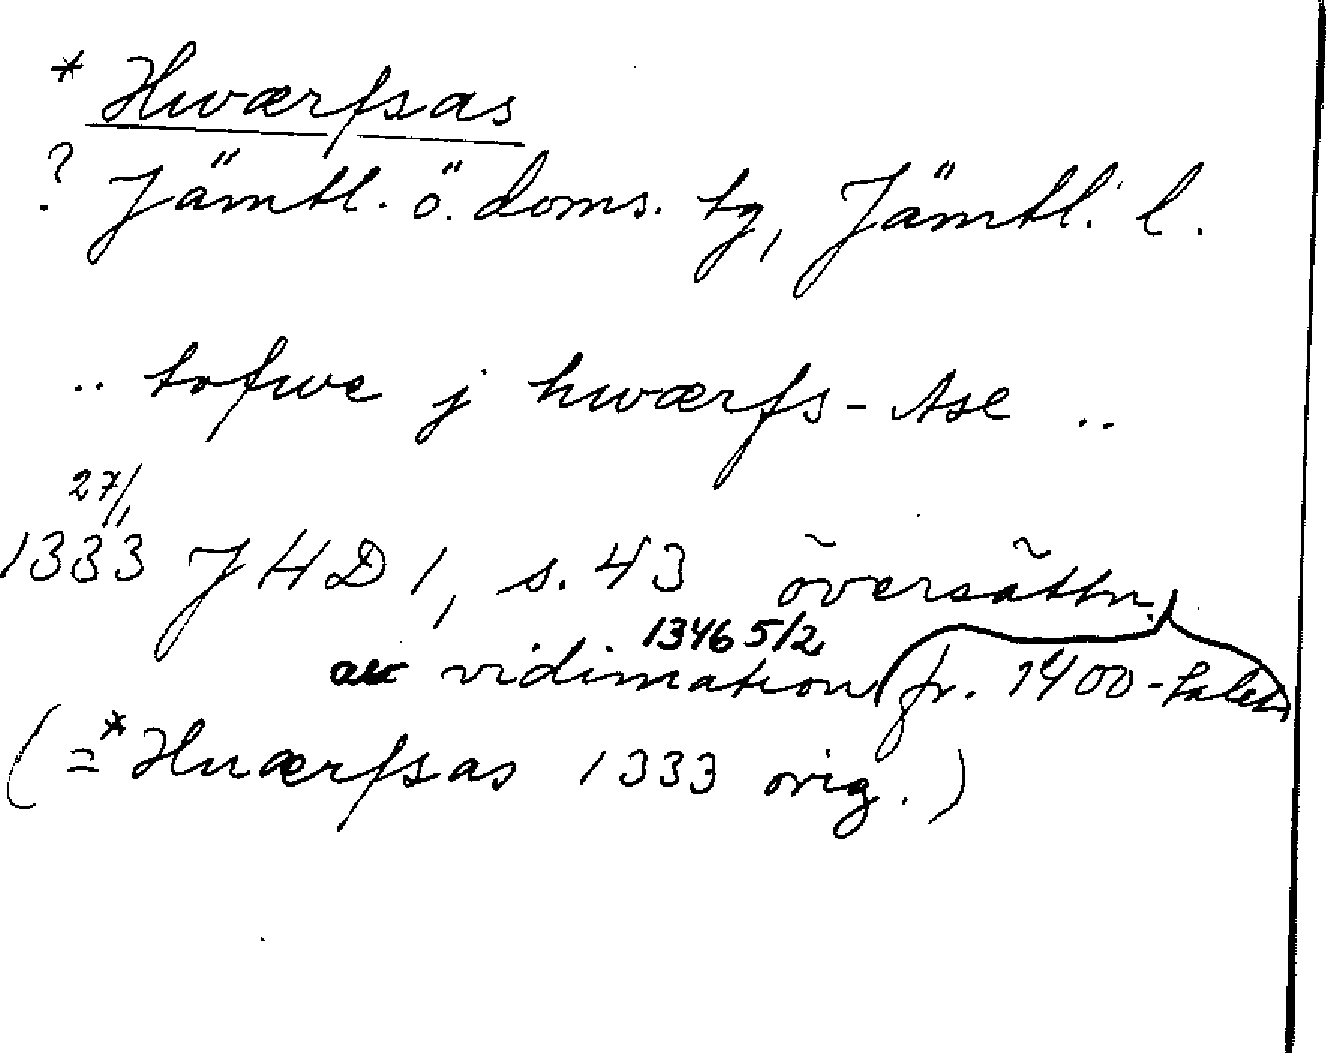 * Hwærfsas
? Jämtl. ö. doms. tg, Jämtl. l.
.. tofwe j hwærfs-Ase ..
27/11
1333 JHD 1, s. 43 översättn.
av vidimation 1346 5/2 fr. 1400-talet
(=*Huærfsas 1333 orig.)